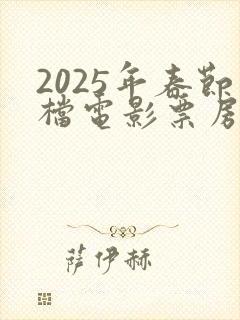 2025年春節
檔電影票房
萨伊赫